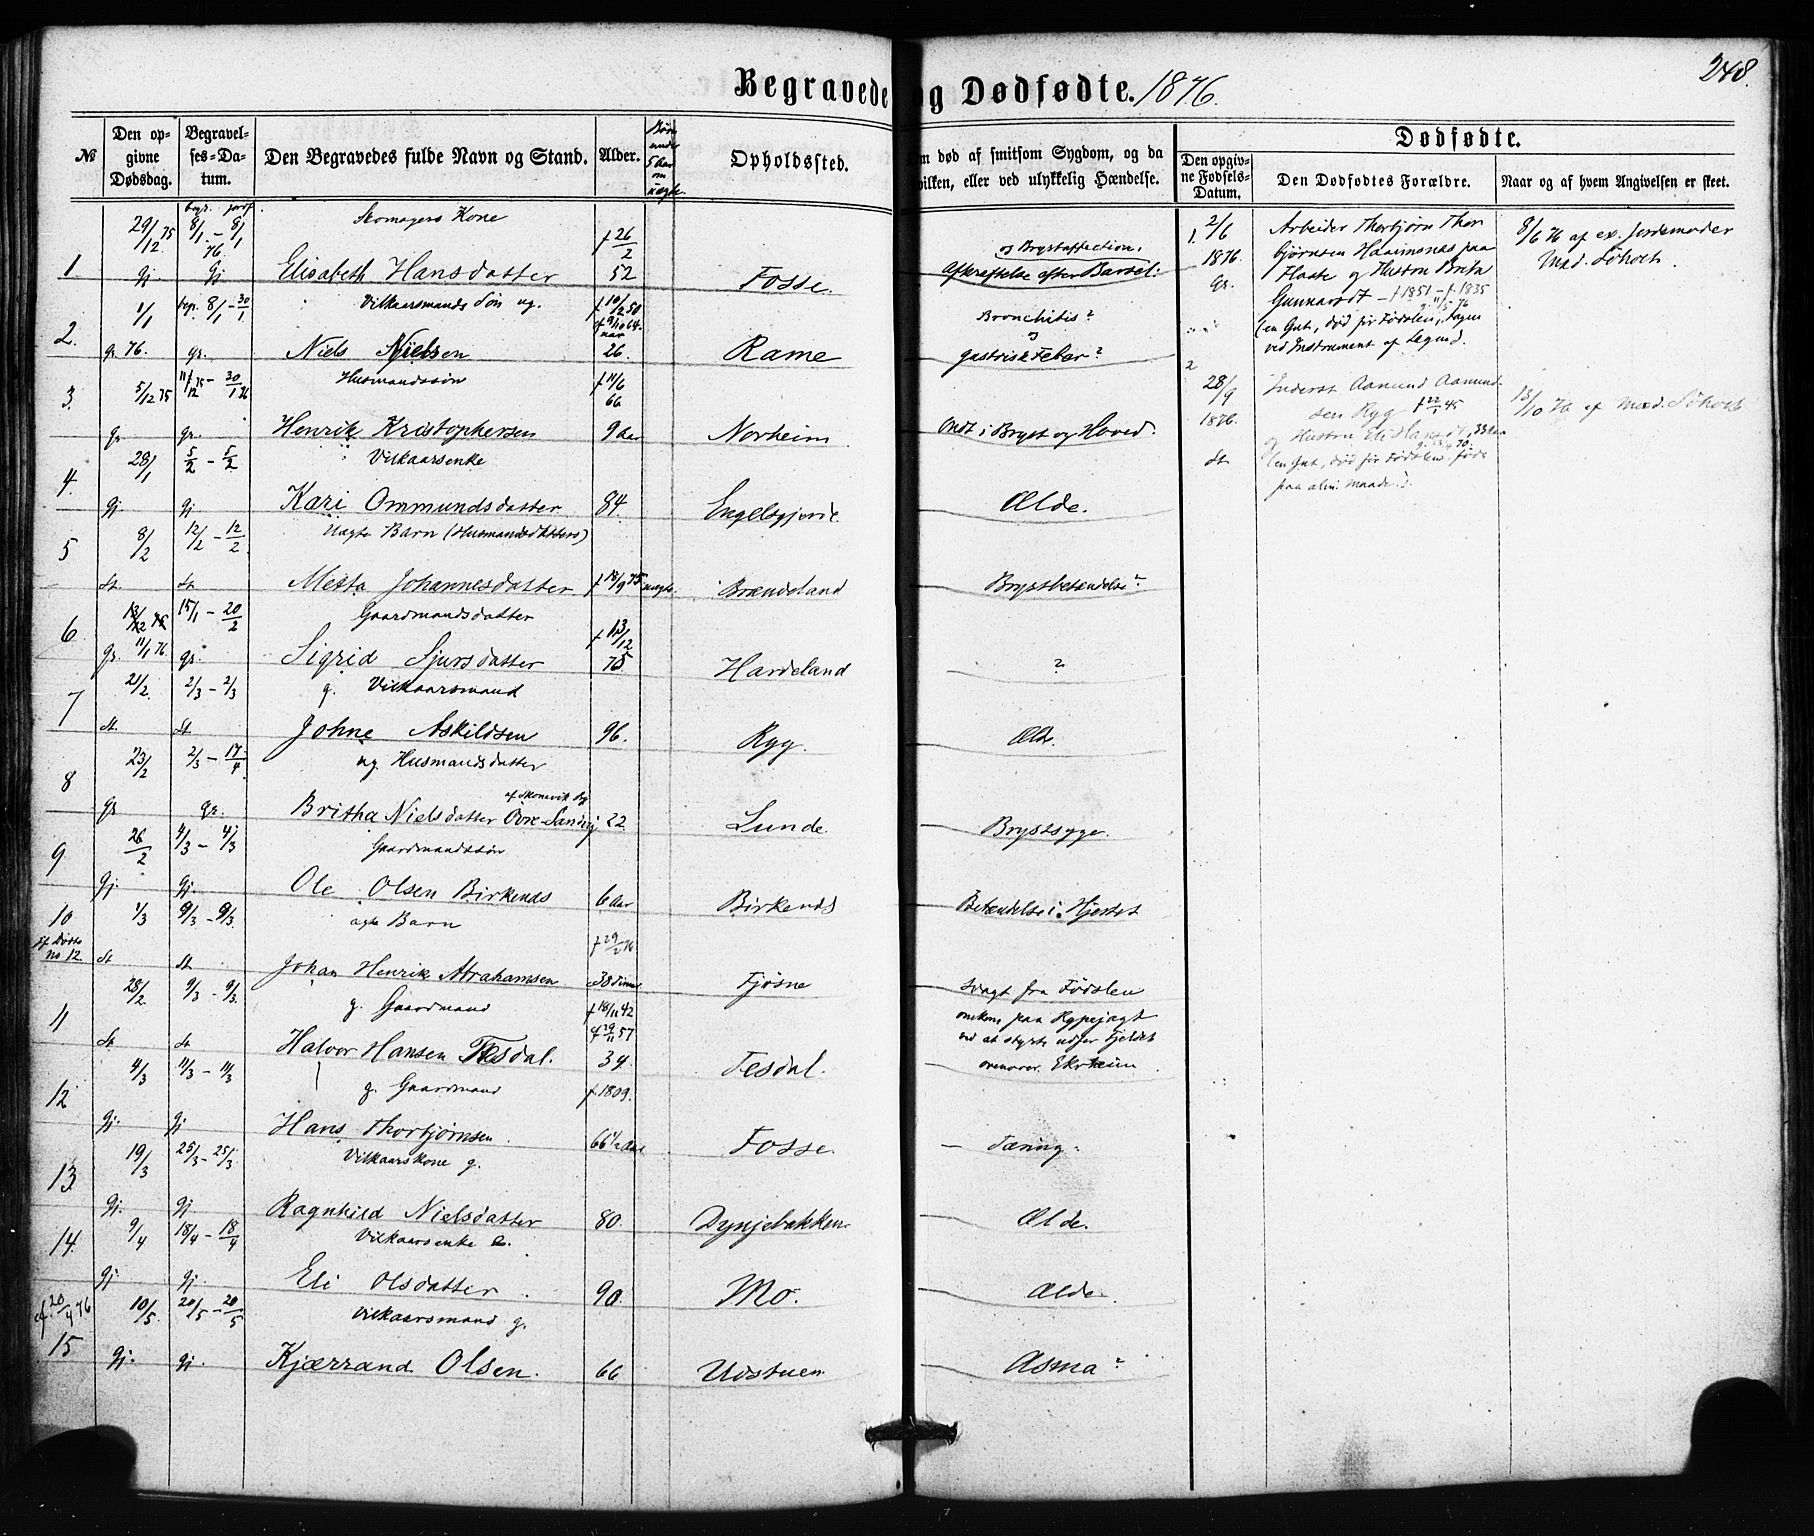 248.
Begravede og Dødfødte. 1876.
№
Den op-
givne
Dødsdag.
Begravel-
ses-Da-
tum.
Den Begravedes fulde Navn og Stand.
Alder.
Børn
under
5 Aar
om
uægte.
Opholdssted.
om død af smitsom Sygdom, og da
hvilken, eller ved ulykkelig Hændelse.
Dødfødte.
Den opgiv-
ne Fødsels-
Datum.
Den Dødfødtes Forældre.
Naar og af hvem Angivelsen er skeet.
begr. jordf.
29/12 75 8/1 - 8/1 Skomagers Kone f 26/2
76.
og Brystaffection.
1 gj gj Elisabeth Hansdatter 52 Fosse. Afkræftelse efter Barsel.
1/1 begr. 8/1 - 30/1 Vilkaarsmands Søn ug. f 10/12 50
Bronchitis?
og
2. gr. 76. gr. Niels Nielsen 26. Rame gastrisk Feber?
5/12 75 11/12 75 - 30/1 76 Husmandssøn f 11/6 66
3. gr gr. Henrik Kristophersen 9 Aar Norheim Ondt i Bryst og Hoved.
28/1 5/2 - 5/2 Vilkaarsenke
4. gj gj. Kari Ommundsdatter 84. Engelsgjerde Ælde.
8/2 12/2 - 12/2 Uægte Barn (Husmandsdatters)
5 st st. Metta Johannesdatter f 18/9 75 uægte. Brændeland Brystbetændelse?
15/1 - 20/2 Gaardmandsdatter f 13/12
6. gr. 11/1 76. gr. Sigrid Sjursdatter 75 Hardeland ?
21/2. 2/3 - 2/3 g. Vilkaarsmand
7 st. st Johne Askildsen 96. Ryg. Ælde.
23/2 2/3 - 17/4 ug. Husmandsdatter
af Skonevik
8 gr gr. Britha Nielsdatter Øvre-Sandvig 22 Lunde. Brystsyge.
26/2 4/3 - 4/3 Gaardmandssøn
9 gj gj. Ole Olsen Birkenes 6 Aar Birkenes Betændelse i Hjertet
1/3 9/3 - 9/3. ægte Barn f 29/2 76
10 st st Johan Henrik Abrahamsen 38 Timer Fjøsne svagt fra Fødslen
No 12.
28/2. 9/3 - 9/3. g. Gaardmand f 18/11 42
omkom paa Rypejagt
ved at styrte udfor Fjeldet
11 st st Halvor Hansen Tesdal. 34. Tesdal. ovenover Ekrheim
4/3 11/3 - 11/3 g. Gaardmand f. 1809.
12 gj. gj. Hans Thorbjørnsen 66 1/2 Aar Fosse. Tæring.
19/3 25/3 - 25/3 Vilkaarskone g.
13. gj. gj. Ragnhild Nielsdatter 80. Dynjebakken Ælde.
9/4 18/4 - 18/4 Vilkaarsenke
14. gj gj. Eli Olsdatter 90. Mo. Ælde.
cf. 20/4 76 10/5. 20/5 - 20/5 Vilkaarsmand g.
15 gj. gj. Kjærrand Olsen. 66 Udstuen Asma?
1. 2/6 1876. gr.
Arbeider Thorbjørn Thor
bjørnsen Haaimones paa
Flaate og Hustru Brita
Gunnarsdt - f 1851 - f. 1835
(en Gut, død før Fødslen, tagen
ved Instrument af Legund.
8/6 76 af ex. Jordemoder
Mad. Søholt.
2 28/9 1876. st
Inderst Aamund Aamund-
sen Ryg
og Hustru
(en Gut, død før Fødslen, født
paa alm. Maade.).
13/10 76 af Mad. Søholt